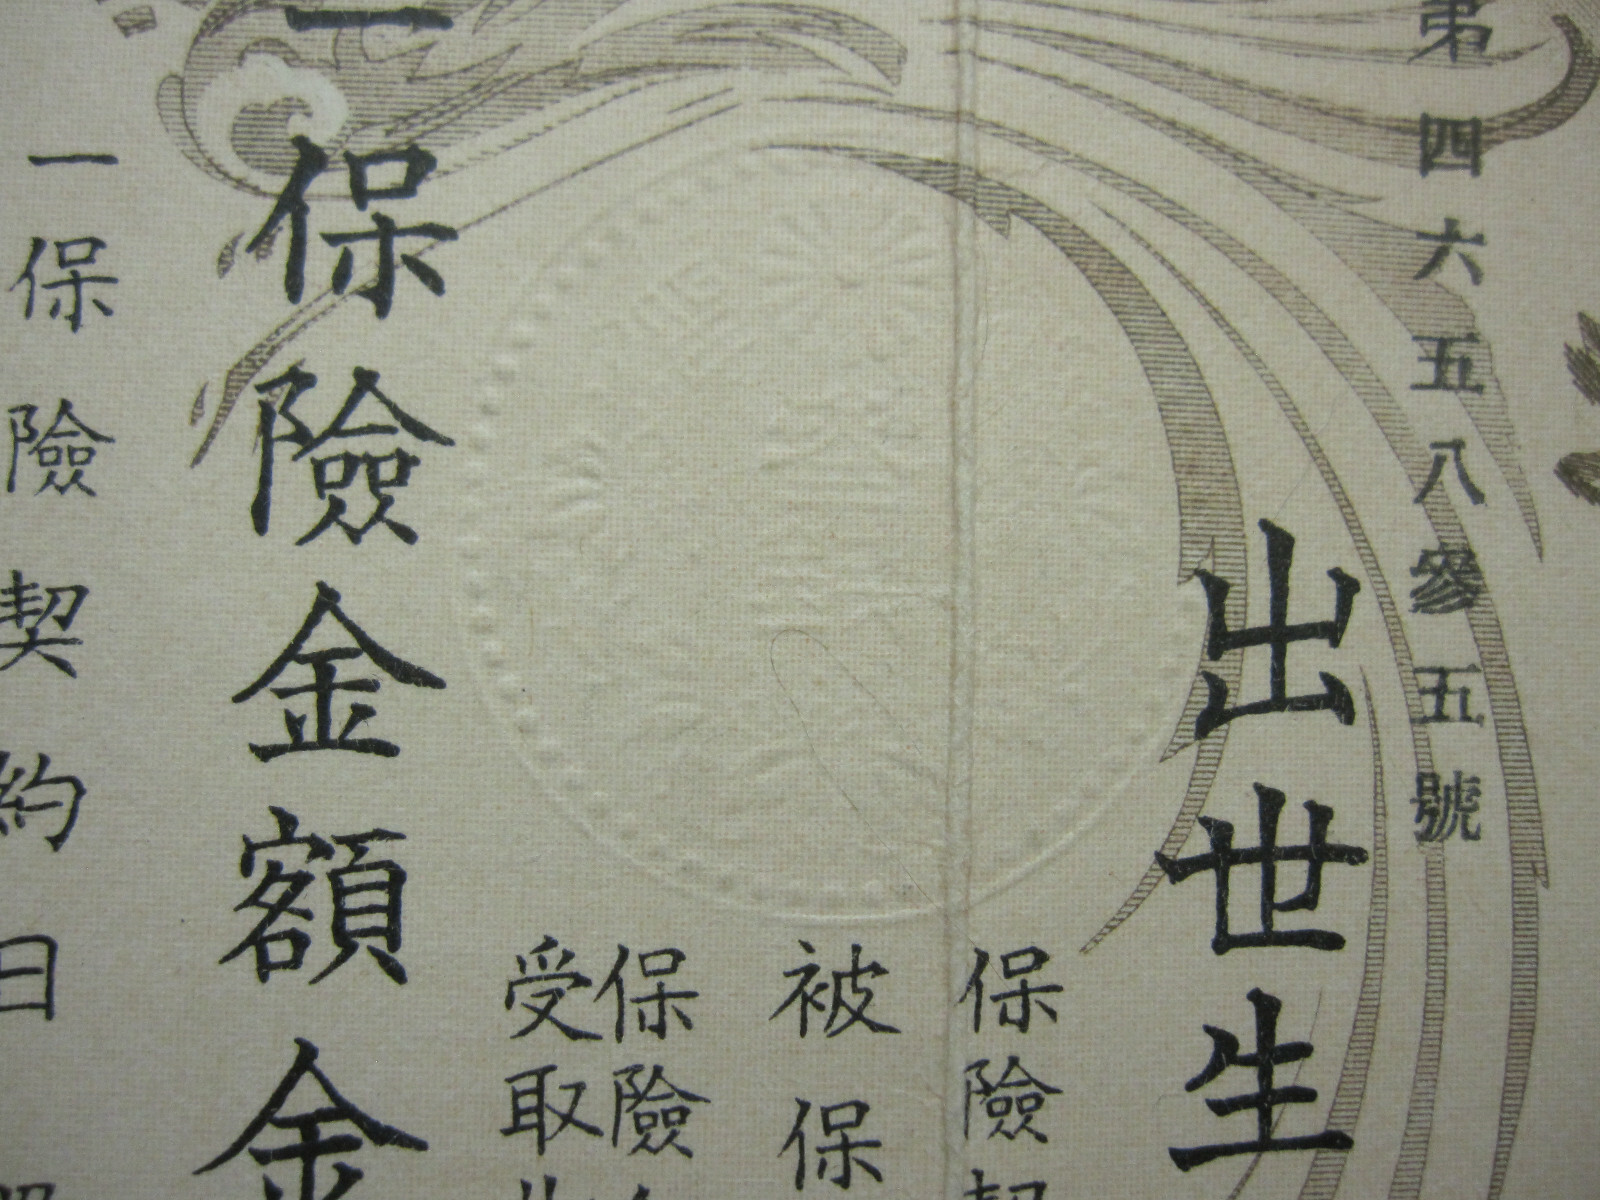 第四六五八參五號
出世生
保險契
被保
保險
受取
一保險金額金
一保險契約日